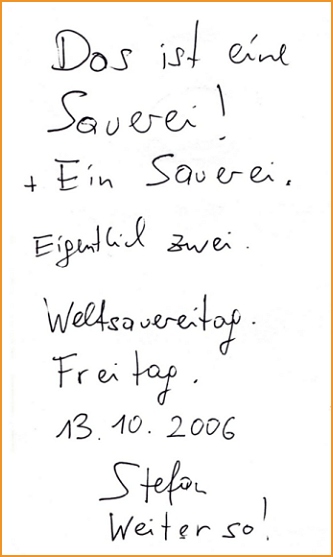 Das ist eine
Sauerei!
+ Ein Sauerei.
Eigentlich zwei.
Weltsauereitag.
Freitag.
13.10.2006
Stefan
Weiter so!